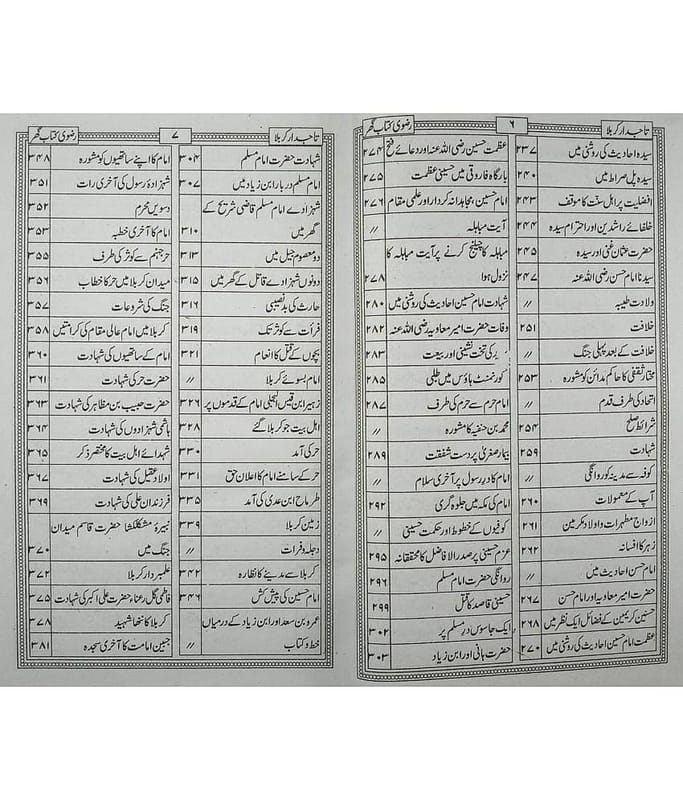 تاجدار کربلا ۶ رضوی کتاب گھر
سیدہ احادیث کی روشنی میں ۲۳۷
سیدہ پل صراط میں ۲۴۰
افضلیت پر اہل سنّت کا موقف ۲۴۳
خلفائے راشدین اور احترام سیدہ ۲۴۴
حضرت عثمان غنی اور سیدہ ۲۴۵
سیدنا امام حسن رضی اللہ عنہ ۲۴۷
ولادت طیبہ //
خلافت ۲۵۱
خلافت کے بعد پہلی جنگ //
مختار ثقفی کا حاکم مدائن کو مشورہ ۲۵۳
اتحاد کی طرف قدم //
شرائط صلح ۲۵۴
شہادت ۲۵۹
کوفہ سے مدینہ کو روانگی //
آپ کے معمولات ۲۶۰
ازواج مطہرات و اولاد مکرمین ۲۶۱
زہر کا افسانہ ۲۶۲
امام حسن احادیث میں //
حضرت امیر معاویہ اور امام حسن ۲۶۷
حسنین کریمین کے فضائل ایک نظر میں ۲۶۸
عظمت امام حسین احادیث کی روشنی میں ۲۷۰
عظمت حسین رضی اللہ عنہ اور دعائے فتح ۲۷۴
بارگاہ فاروقی میں حسینی عظمت ۲۷۵
امام حسین، مجاہدانہ کردار اور علمی مقام ۲۷۶
آیت مباہلہ //
مباہلہ کا چیلنج کرنے پر آیت مباہلہ کا
نزول ہوا ۲۷۸
شہادت امام حسین احادیث کی روشنی میں ۲۸۰
وفات حضرت امیر معاویہ رضی اللہ عنہ ۲۸۲
یزید کی تخت نشینی اور بیعت ۲۸۳
گورنمنٹ ہاؤس میں طلبی ۲۸۵
امام حرم سے حرم کی طرف ۲۸۷
محمد بن حنفیہ کا مشورہ //
بیمار صغریٰ پر دست شفقت ۲۸۹
امام کا در رسول پر آخری سلام //
امام کی مکہ میں جلوہ گری ۲۹۲
کوفیوں کے خطوط اور حکمت حسینی //
عزم حسینی پر صدر الافاضل کا محققانہ ۲۹۵
روانگی حضرت امام مسلم ۲۹۶
حسینی قاصد کا قتل ۲۹۹
ایک جاسوس در مسلم پر ۳۰۲
حضرت ہانی اور ابن زیاد ۳۰۳
تاجدار کربلا ۷ رضوی کتاب گھر
شہادت حضرت امام مسلم ۳۰۴
امام مسلم دربار ابن زیاد میں ۳۰۷
شہزادے امام مسلم قاضی شریح کے
گھر میں ۳۱۰
دو معصوم جیل میں ۳۱۳
دونوں شہزادے قاتل کے گھر میں ۳۱۵
حارث کی بد نصیبی ۳۱۶
فرأت سے کوثر تک ۳۱۹
بچوں کے قتل کا انعام ۳۲۱
امام بسوئے کربلا //
زہیر ابن قیس البجلی امام کے قدموں پر ۳۲۶
اہل بیت جو کربلا گئے ۳۲۸
حر کی آمد ۳۳۰
حر کے سامنے امام کا اعلان حق ۳۳۱
طرماح ابن عدی کی آمد ۳۳۵
زمین کربلا ۳۳۹
دجلہ و فرات //
کربلا سے مدینے کا نظارہ ۳۴۲
امام حسین کی پیش کش ۳۴۶
عمرو بن سعد اور ابن زیاد کے درمیاں
خط و کتاب //
امام کا اپنے ساتھیوں کو مشورہ ۳۴۸
شہزادۂ رسول کی آخری رات ۳۵۱
دسویں محرم ۳۵۲
امام کا آخری خطبہ ۳۵۳
حر جہنم سے کوثر کی طرف ۳۵۵
میدان کربلا میں حر کا خطاب ۳۵۶
جنگ کی شروعات ۳۵۷
کربلا میں امام عالی مقام کی کرامتیں ۳۵۸
امام کے ساتھیوں کی شہادت ۳۶۰
حضرت حر کی شہادت ۳۶۱
حضرت حبیب بن مظاہر کی شہادت ۳۶۳
ہاشمی شہزادوں کی شہادت ۳۶۴
شہدائے اہل بیت کا مختصر ذکر ۳۶۵
اولاد عقیل کی شہادت ۳۶۷
فرزندان علی کی شہادت ۳۶۹
نبیرۂ مشکلکشا حضرت قاسم میدان
جنگ میں ۳۷۰
علمبردار کربلا ۳۷۲
فاطمی گل رعناء حضرت علی اکبر کی شہادت ۳۷۵
کربلا کا ننھا شہید ۳۷۸
حسین امامت کا آخری سجدہ ۳۸۱